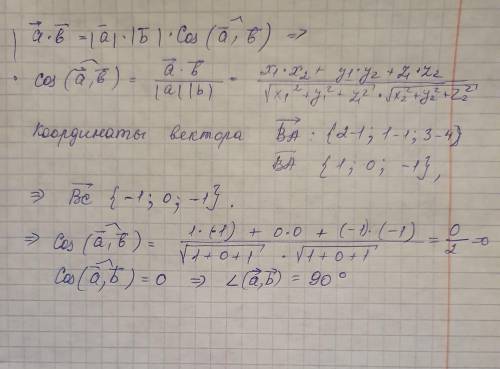 | a⃗ · b⃗ = |a⃗| · |b⃗| · Cos (a⃗, b⃗) ⇒
• cos (a⃗, b⃗) = a⃗ · b⃗ / |a| |b| = x₁·x₂ + y₁·y₂ + z₁·z₂ / √x₁² + y₁² + z₁² · √x₂² + y₂² + z₂²
Координаты вектора BA⃗ : {2-1; 1-1; 3-4}
BA⃗ {1; 0; -1},
⇒ BC⃗ {-1; 0; -1}.
⇒ Cos (a⃗, b⃗) = 1·(-1) + 0·0 + (-1)·(-1) / √1+0+1 · √1+0+1 = 0/2 = 0
Cos (a⃗, b⃗) = 0 ⇒ ∠(a⃗, b⃗) = 90°